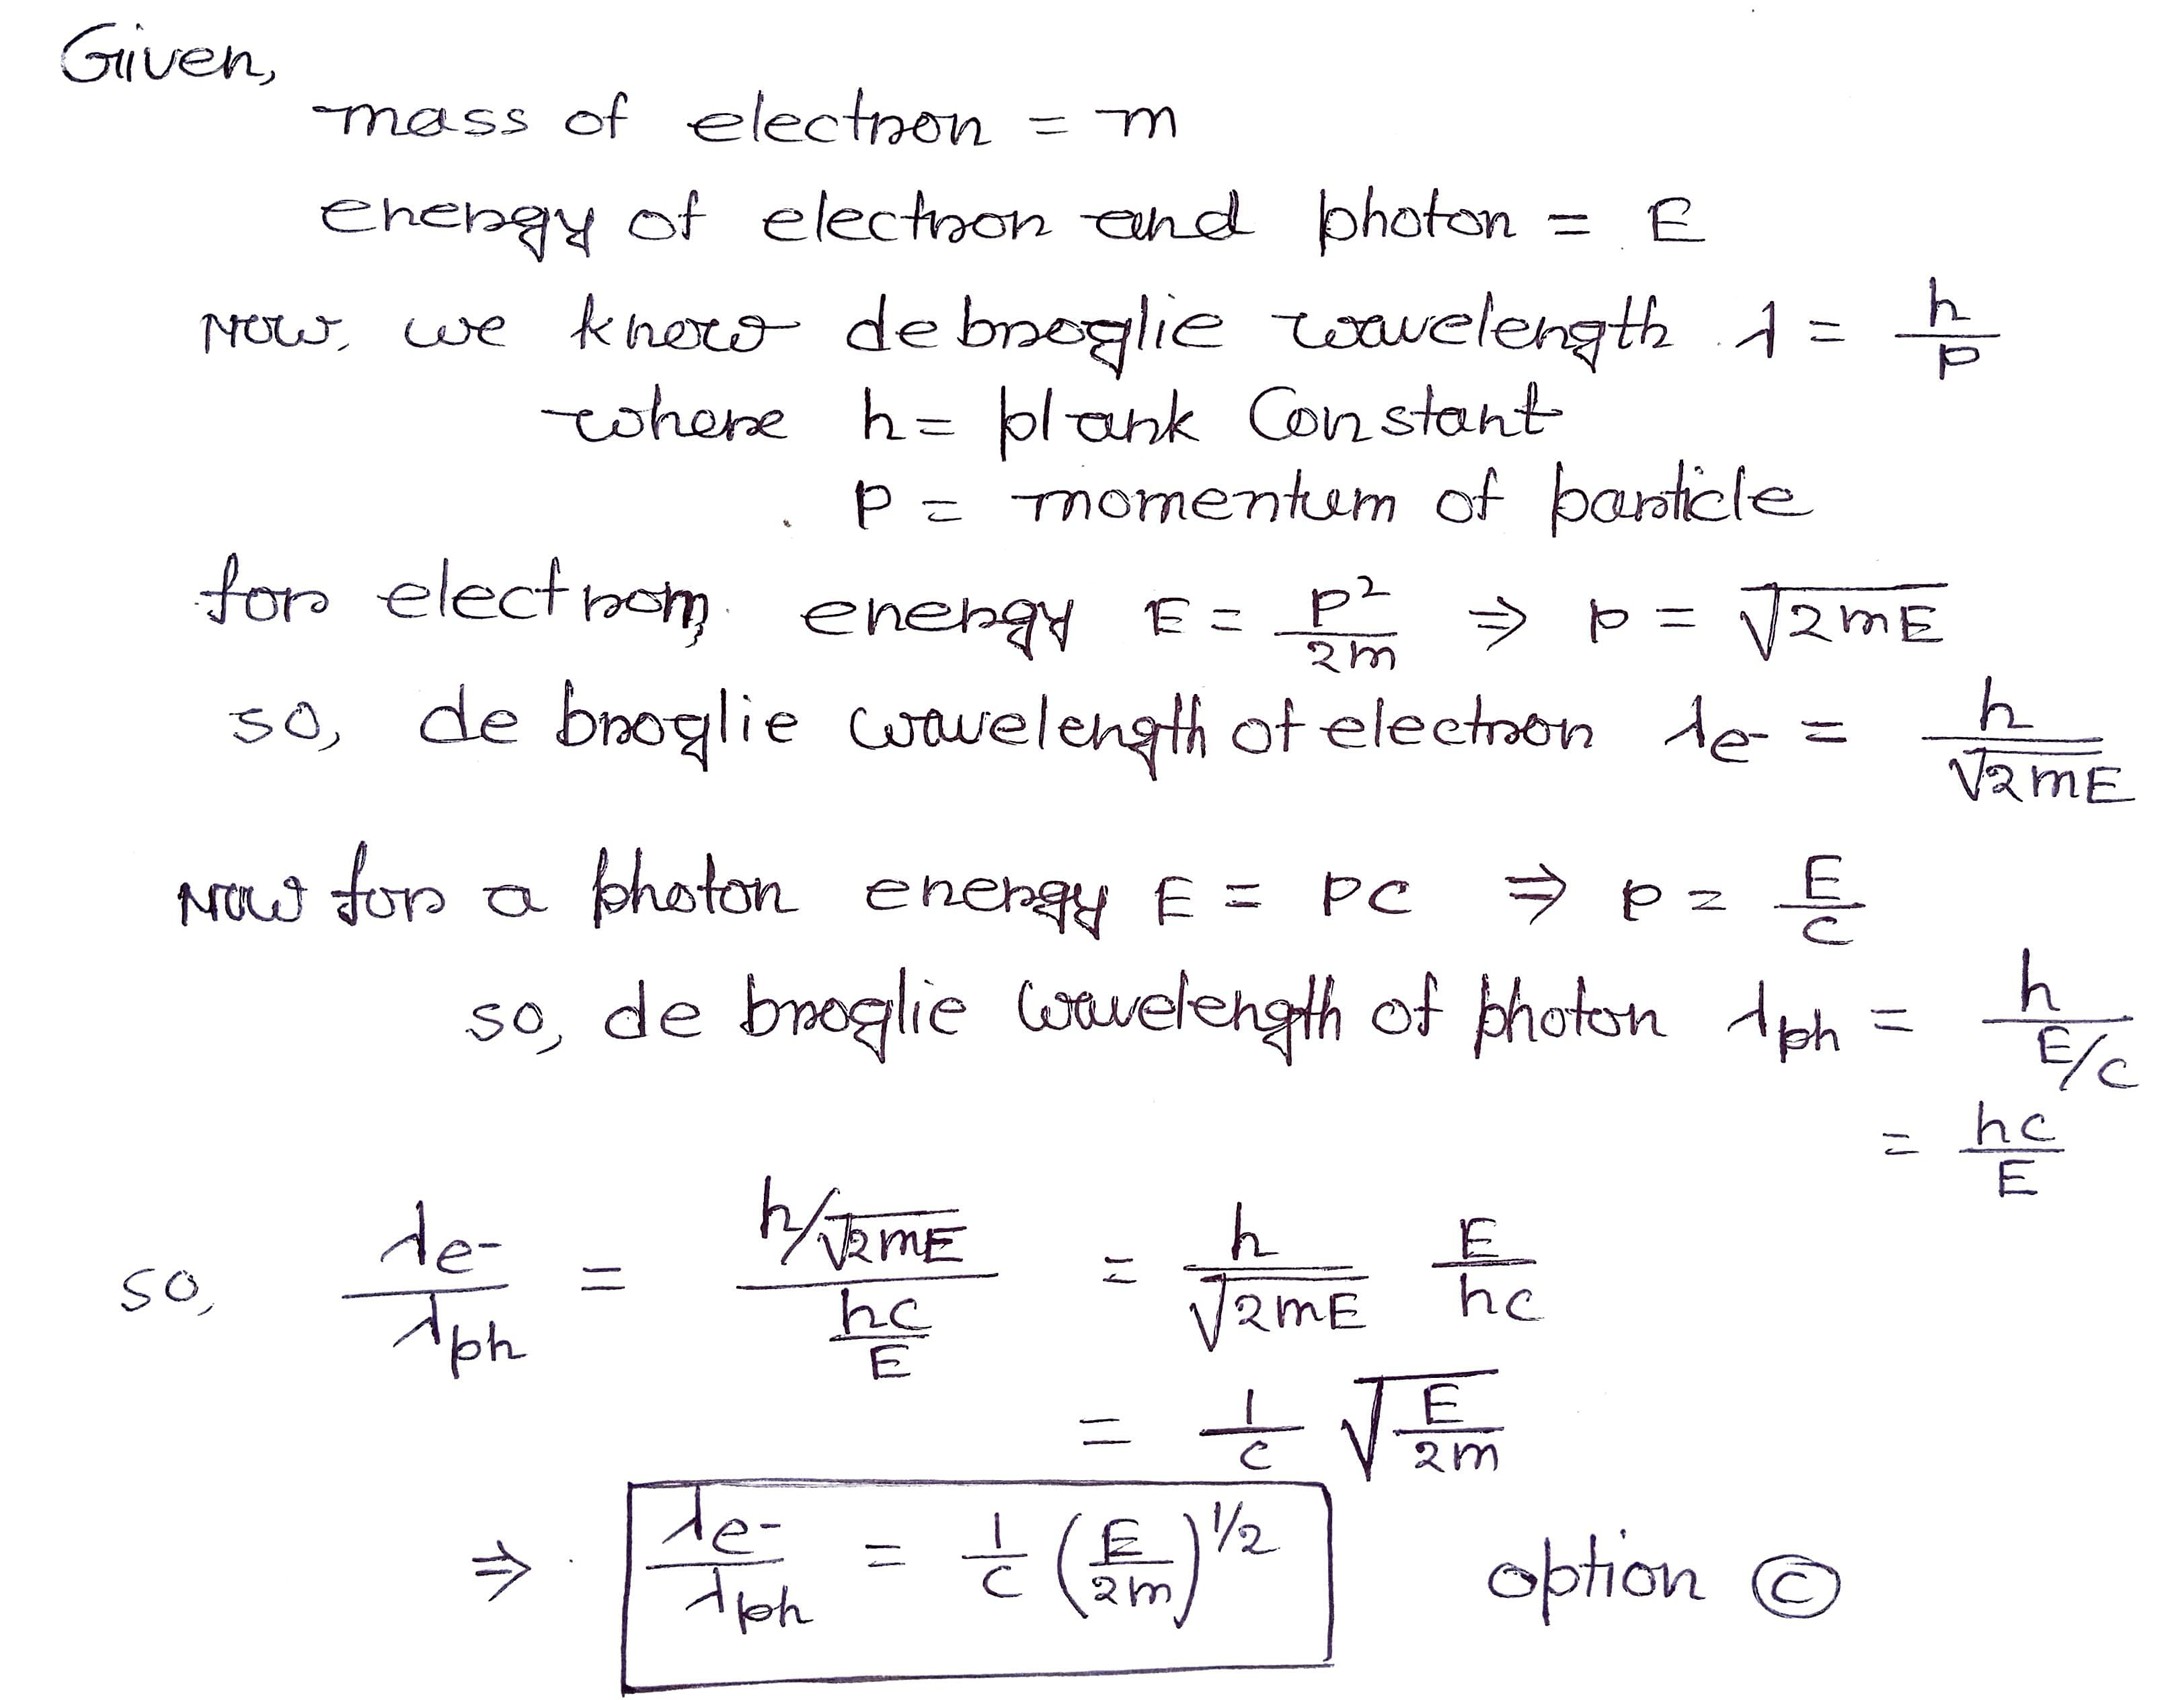 Given,
mass of electron = m
energy of electron and photon = E
Now, we know de broglie wavelength λ = h/p
where h = plank Constant
p = momentum of particle
for electron, energy E = p²/2m ⇒ p = √2mE
so, de broglie wavelength of electron λe- = h/√2mE
Now for a photon energy E = pc ⇒ p = E/c
so, de broglie wavelength of photon λph = h/E/c
= hc/E
so, λe-/λph = h/√2mE / hc/E = h/√2mE E/hc
= 1/c √E/2m
⇒ λe-/λph = 1/c (E/2m)^1/2 option ©